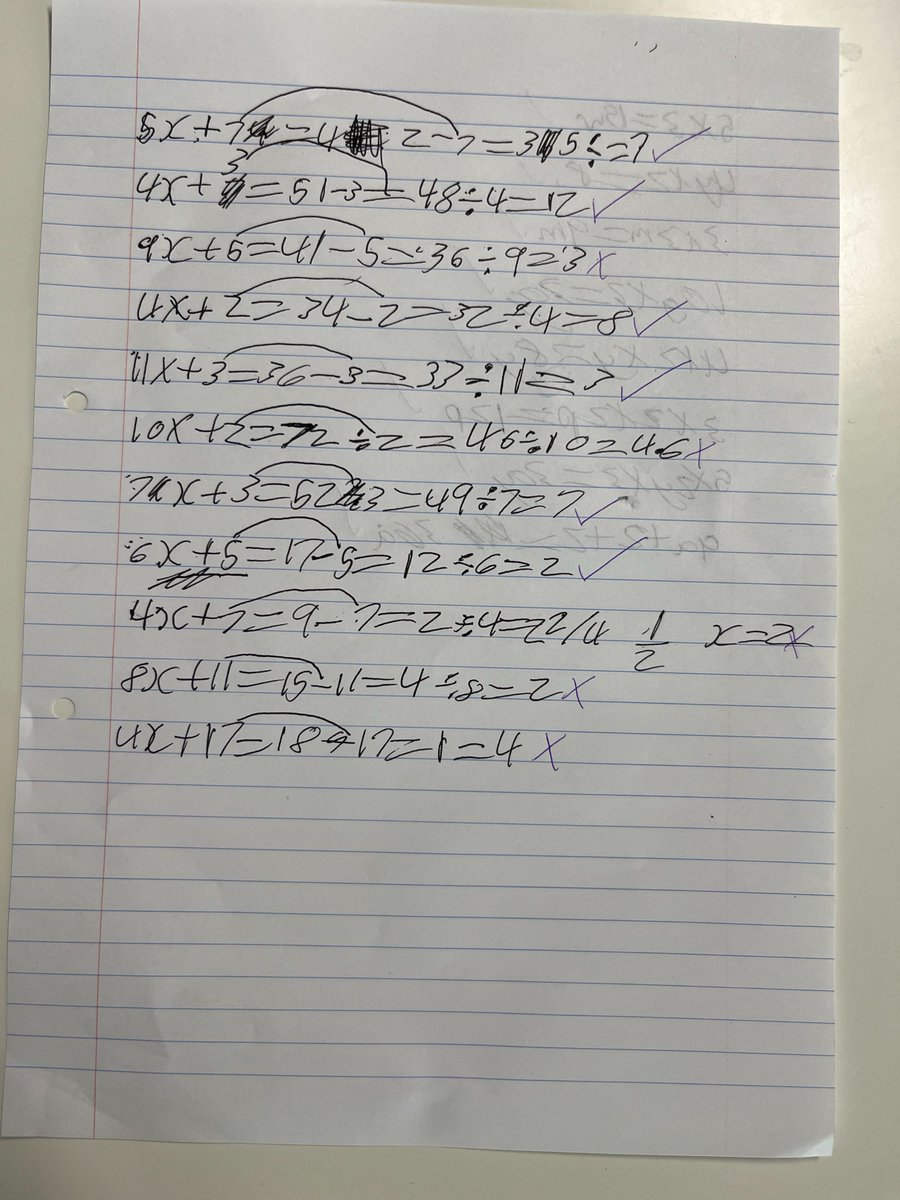 5x+7=42-7=35÷=7✓
3
4x+=51-3=48÷4=12✓
9x+5=41-5=36÷9=3x
4x+2=34-2=32÷4=8✓
11x+3=36-3=33÷11=3✓
10x+2=72÷2=46÷10=4.6x
7x+3=523=49÷7=7✓
6x+5=17-5=12÷6=2✓
4x+7=9-7=2÷4=22/4 1/2 x=2x
8x+11=15-11=4÷8=2x
4x+17=18-17=1=4x